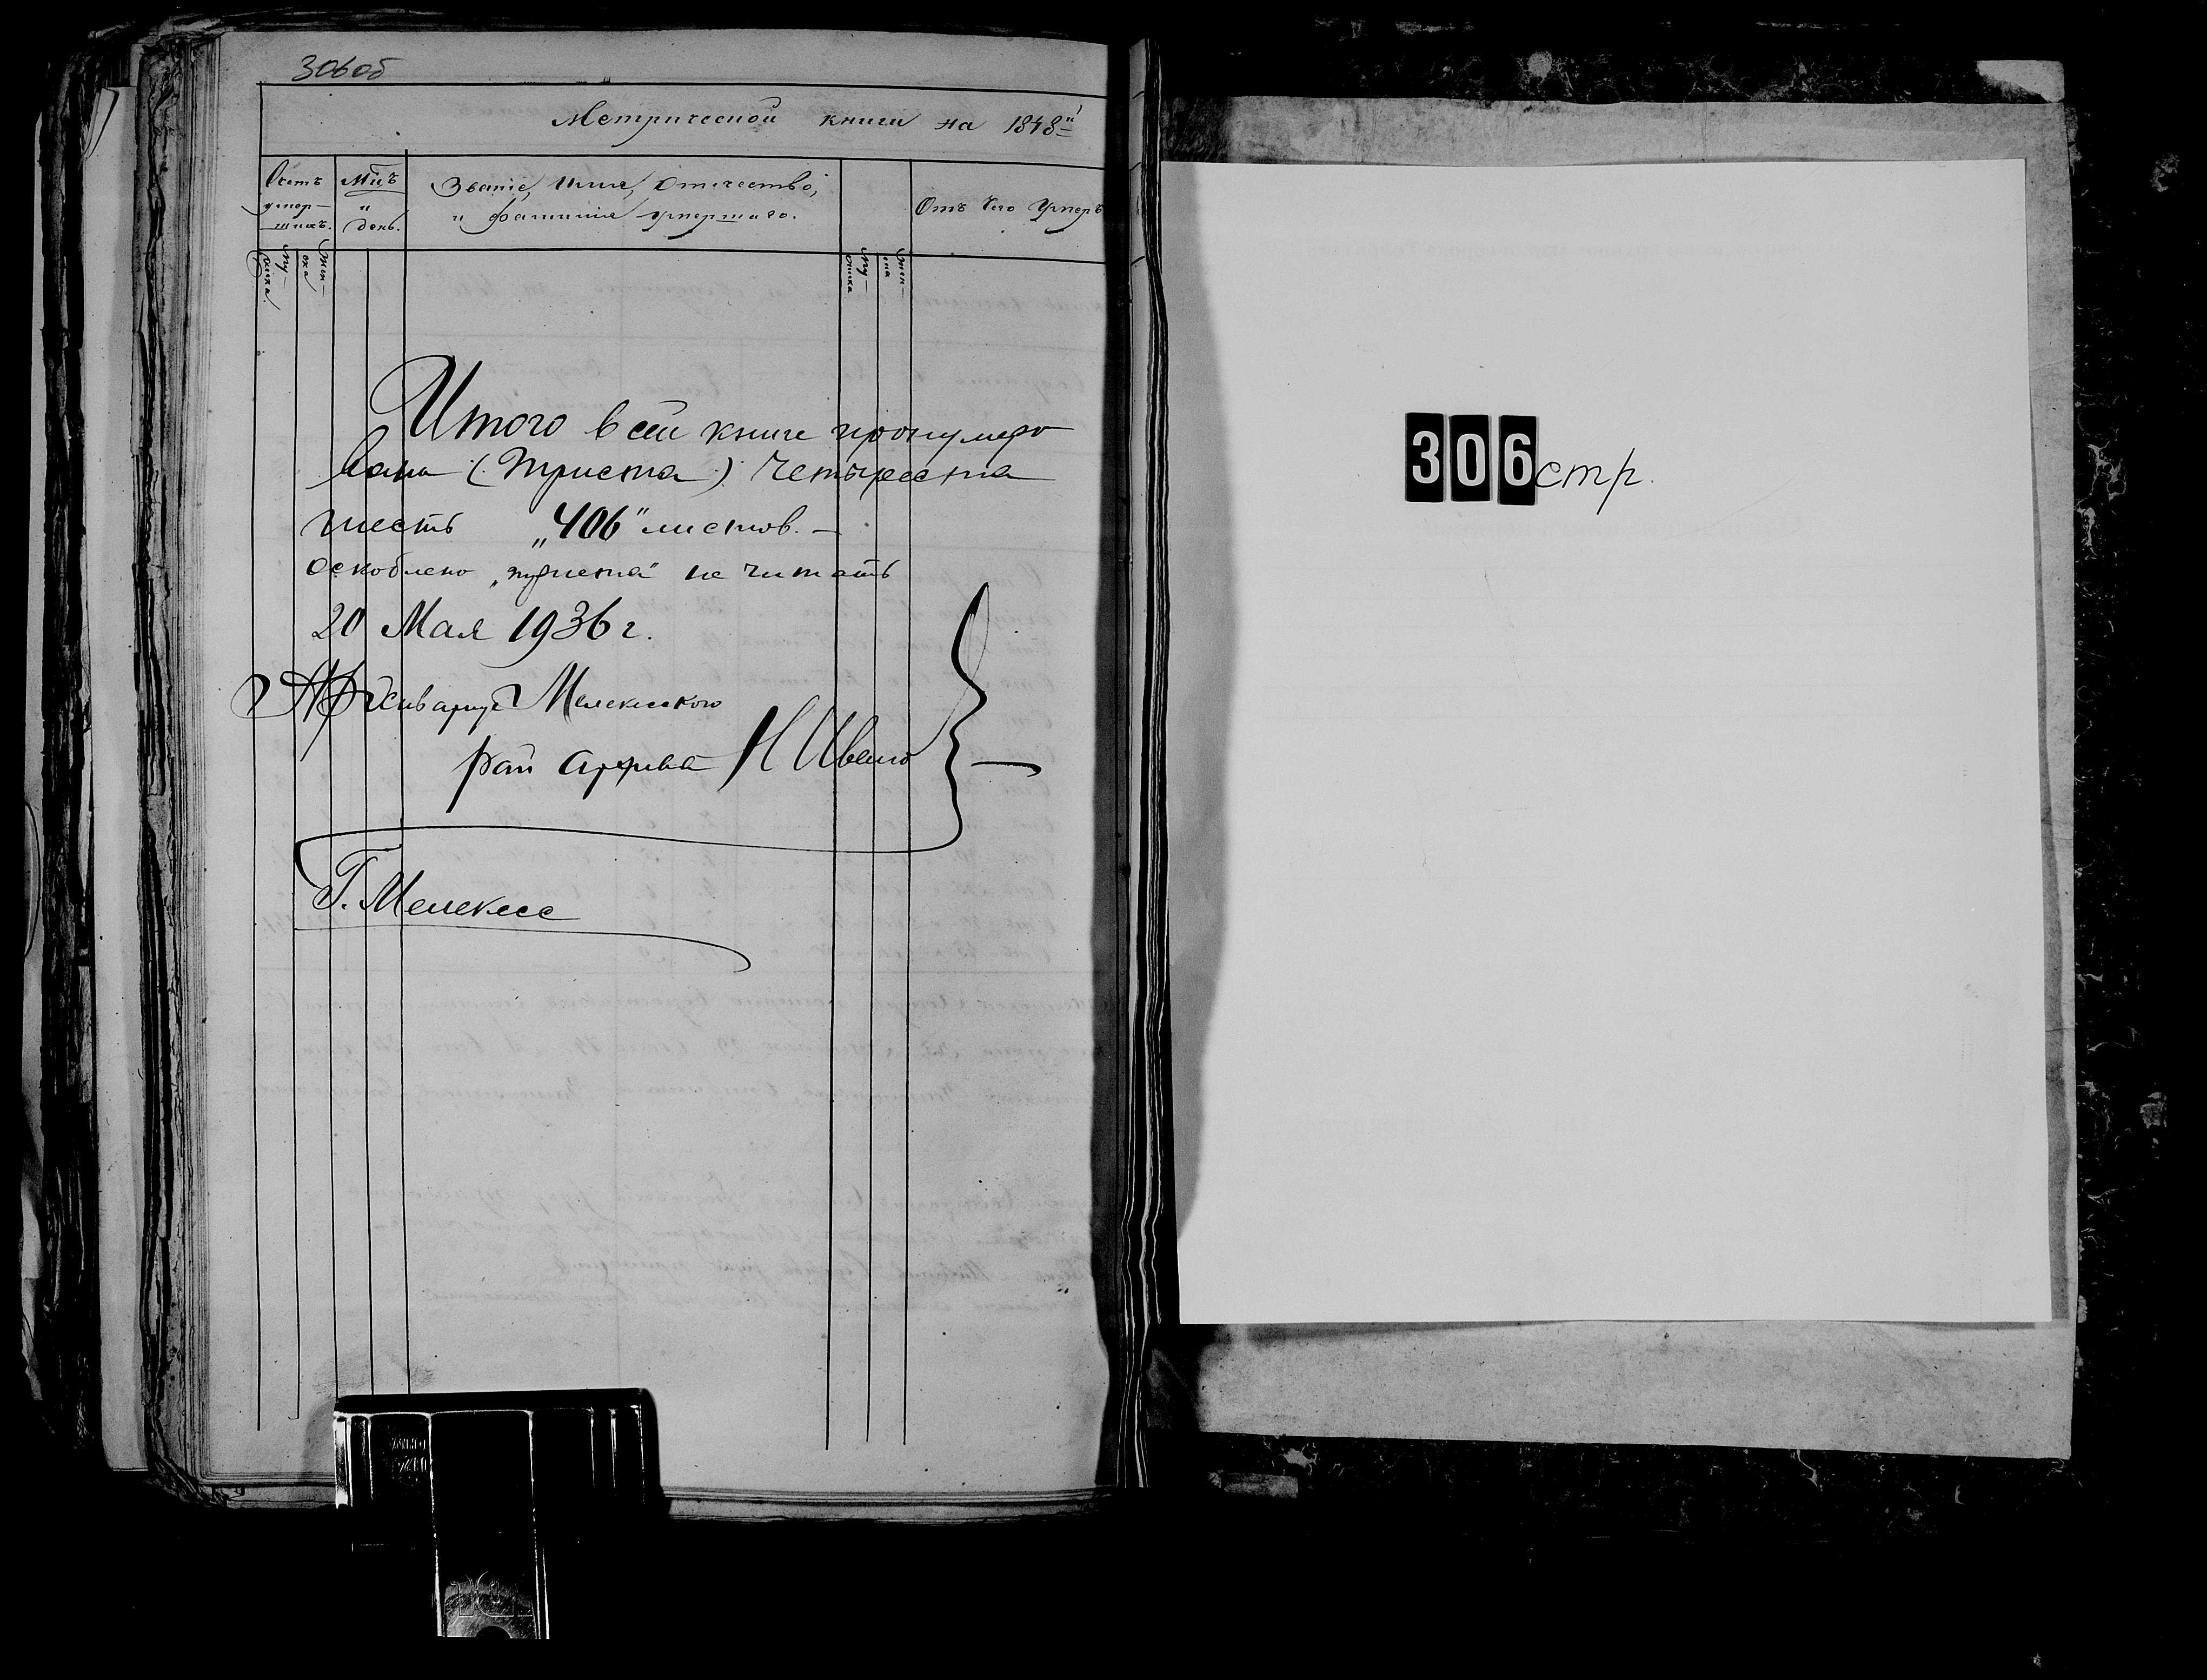 306об
Метрической книги на 1848й
Счетъ умер-шихъ.
Мцъ и день.
Званіе, Имя, Отчество,
и фамилія умершаго.
Отъ Чего Умеръ
Му-жска.
Жен-ска
Му-жска
Жен-ска
Итого в сей книге пронумеро
вано (триста) четыреста
шесть „406" листов. —
оскоблено „триста" не читать
20 Мая 1936 г.
Архивариус Мелекесского
рай архива Н Ивано
Г. Мелекесс
306 стр.